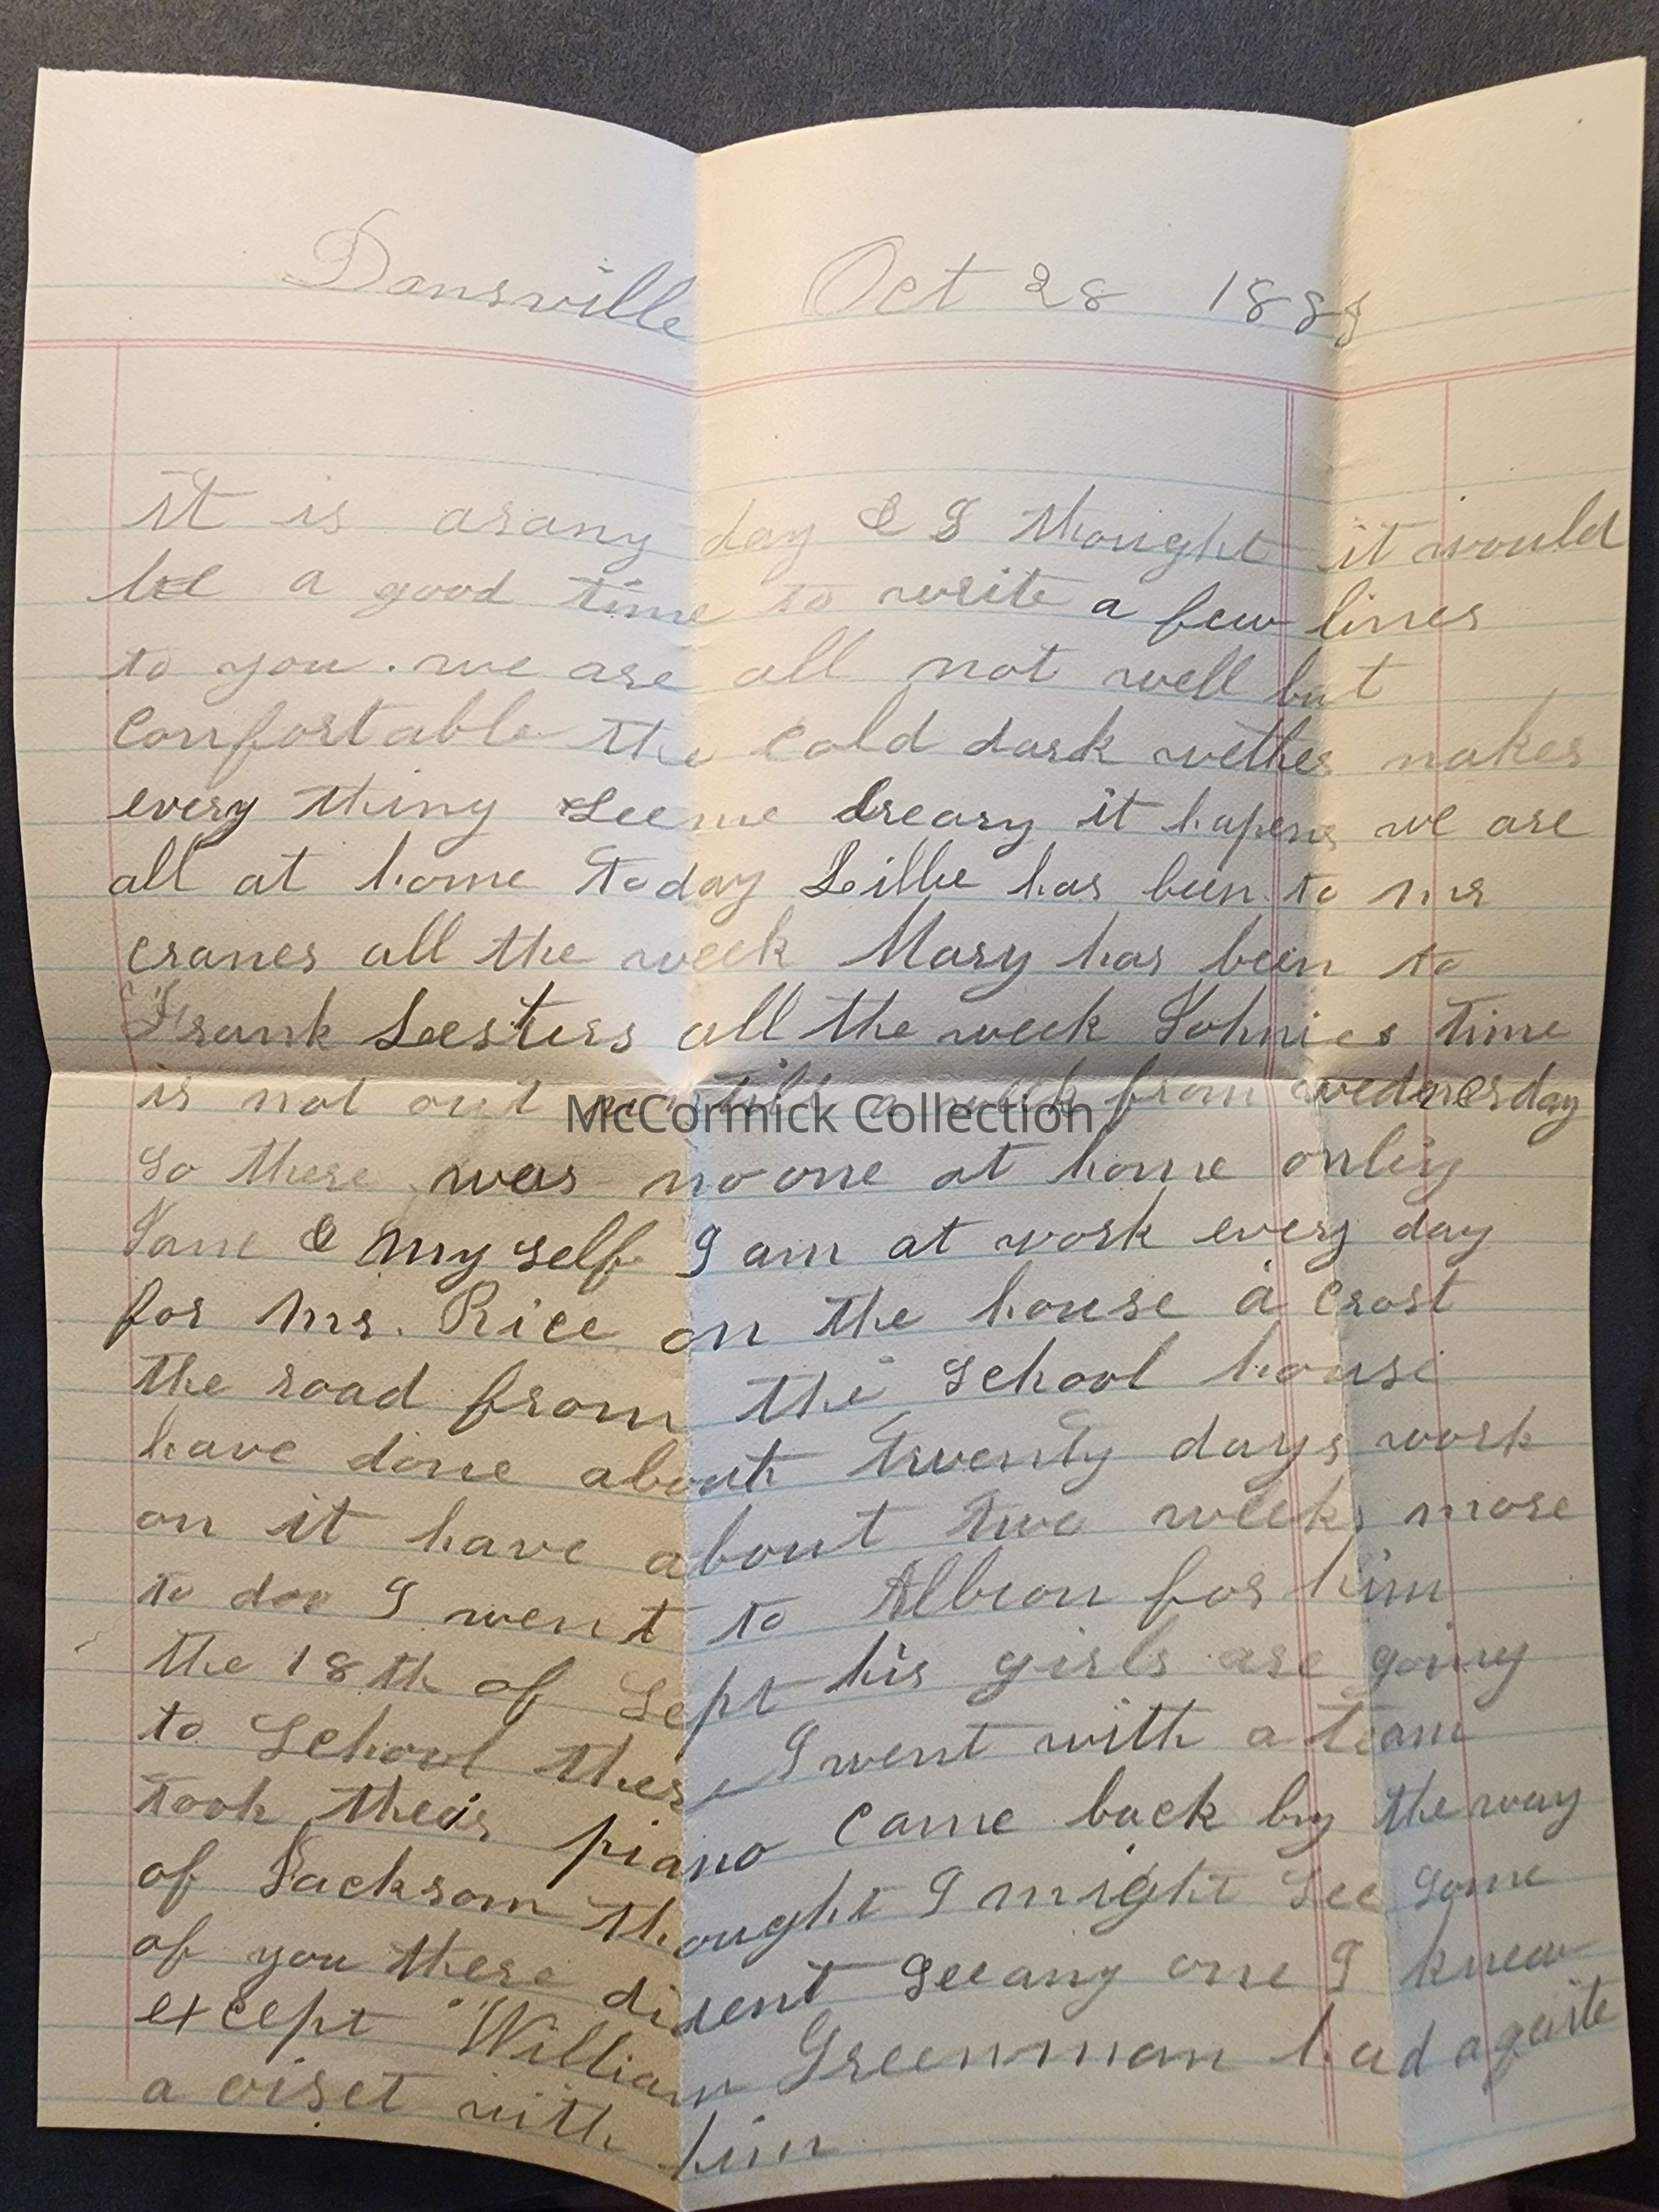 Dansville Oct 28 1888
it is arany day & I thought it would
be a good time to write a few lines
to you. we are all not well but
Confortable the cold dark wether makes
every thing Seeme dreary it hapens we are
all at home today Lillie has been to mr
cranes all the week Mary has been to
Frank Leesters all the week Johnies time
is not out untill a week from wednesday
So there was no one at home onliy
Jane & my Self I am at work every day
for Mr. Rice on the house a crost
the road from the School house
have done about twenty days work
on it have about two weeks more
to doo I went to Albion for him
the 18th of Sept his girls are going
to School there I went with a team
took their piano came back by the way
of Jackson thought I might See Some
of you there dident See any one I knew
except William Greenman had a quite
a viset with him
McCormick Collection